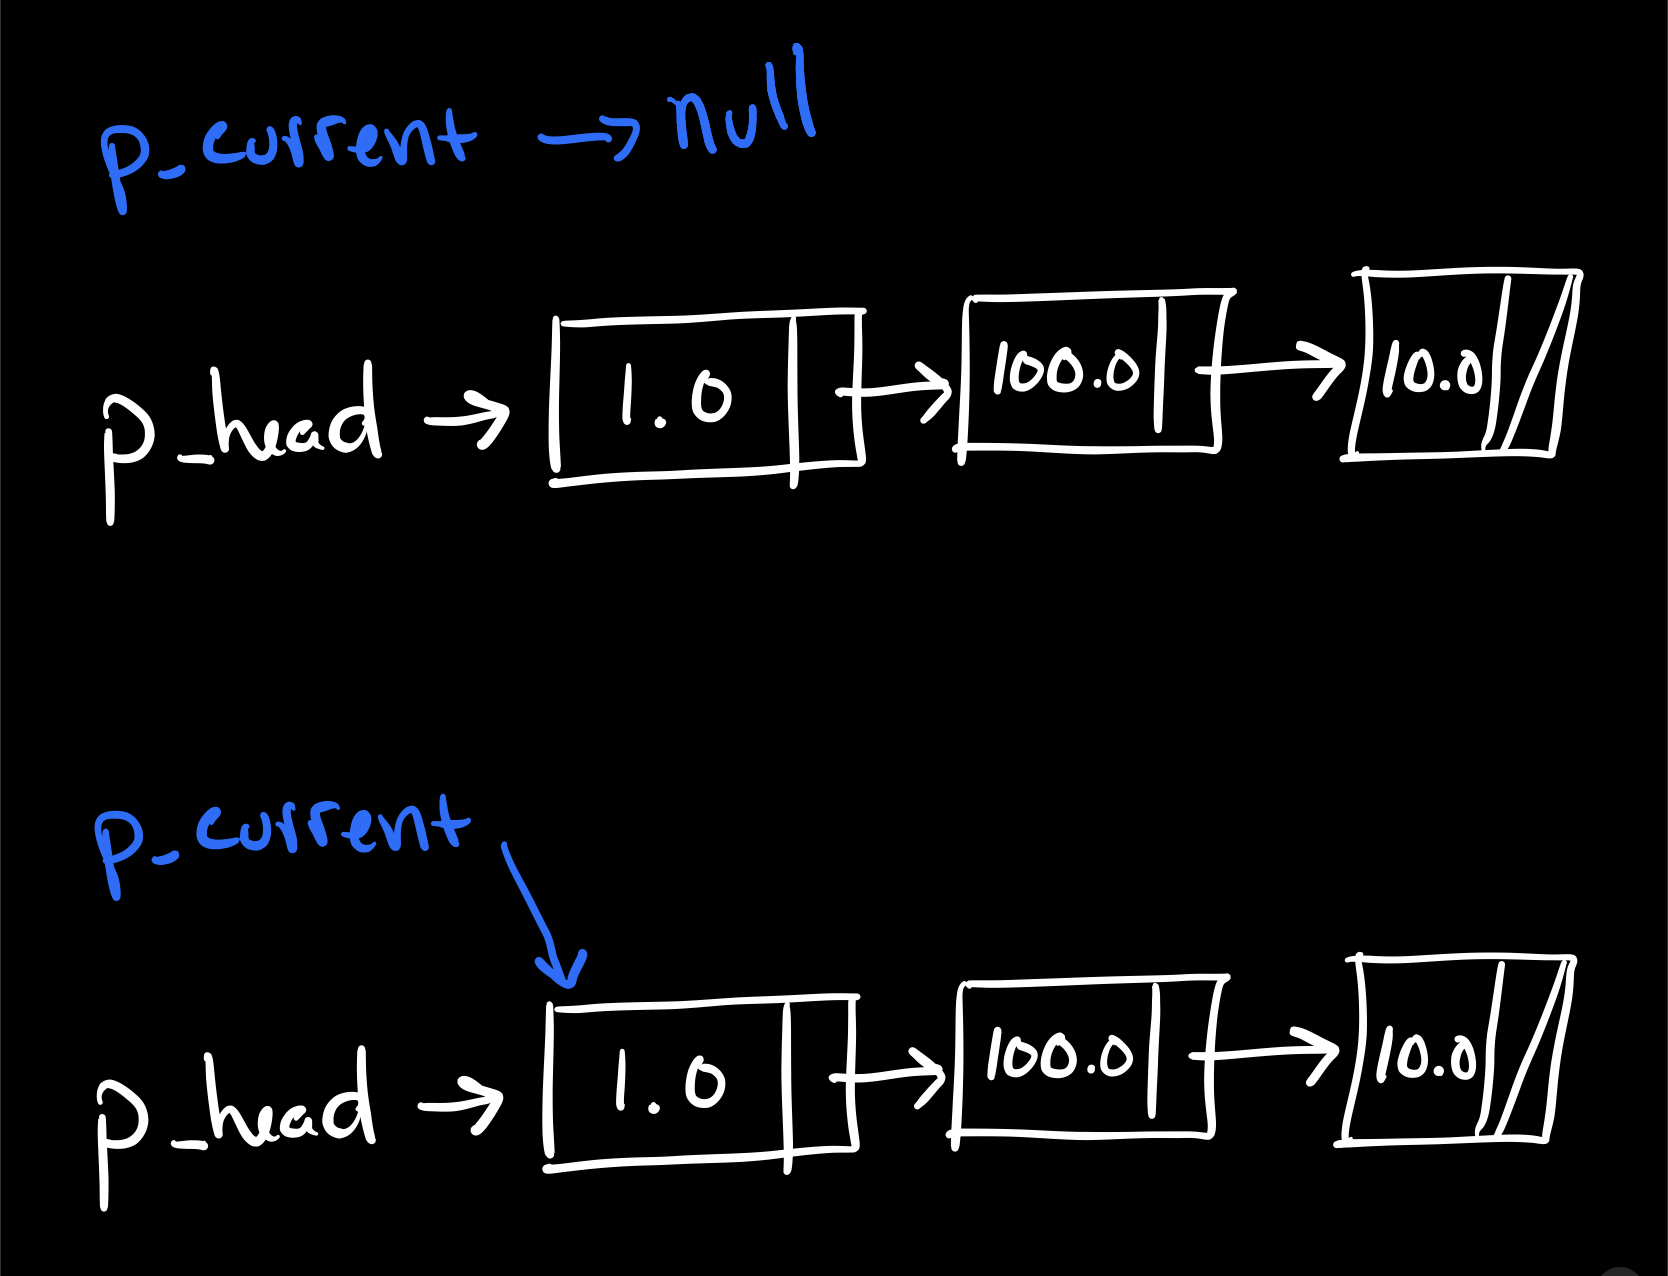 p_current → null
p_head → 1.0 → 100.0 → 10.0
p_current
p_head → 1.0 → 100.0 → 10.0